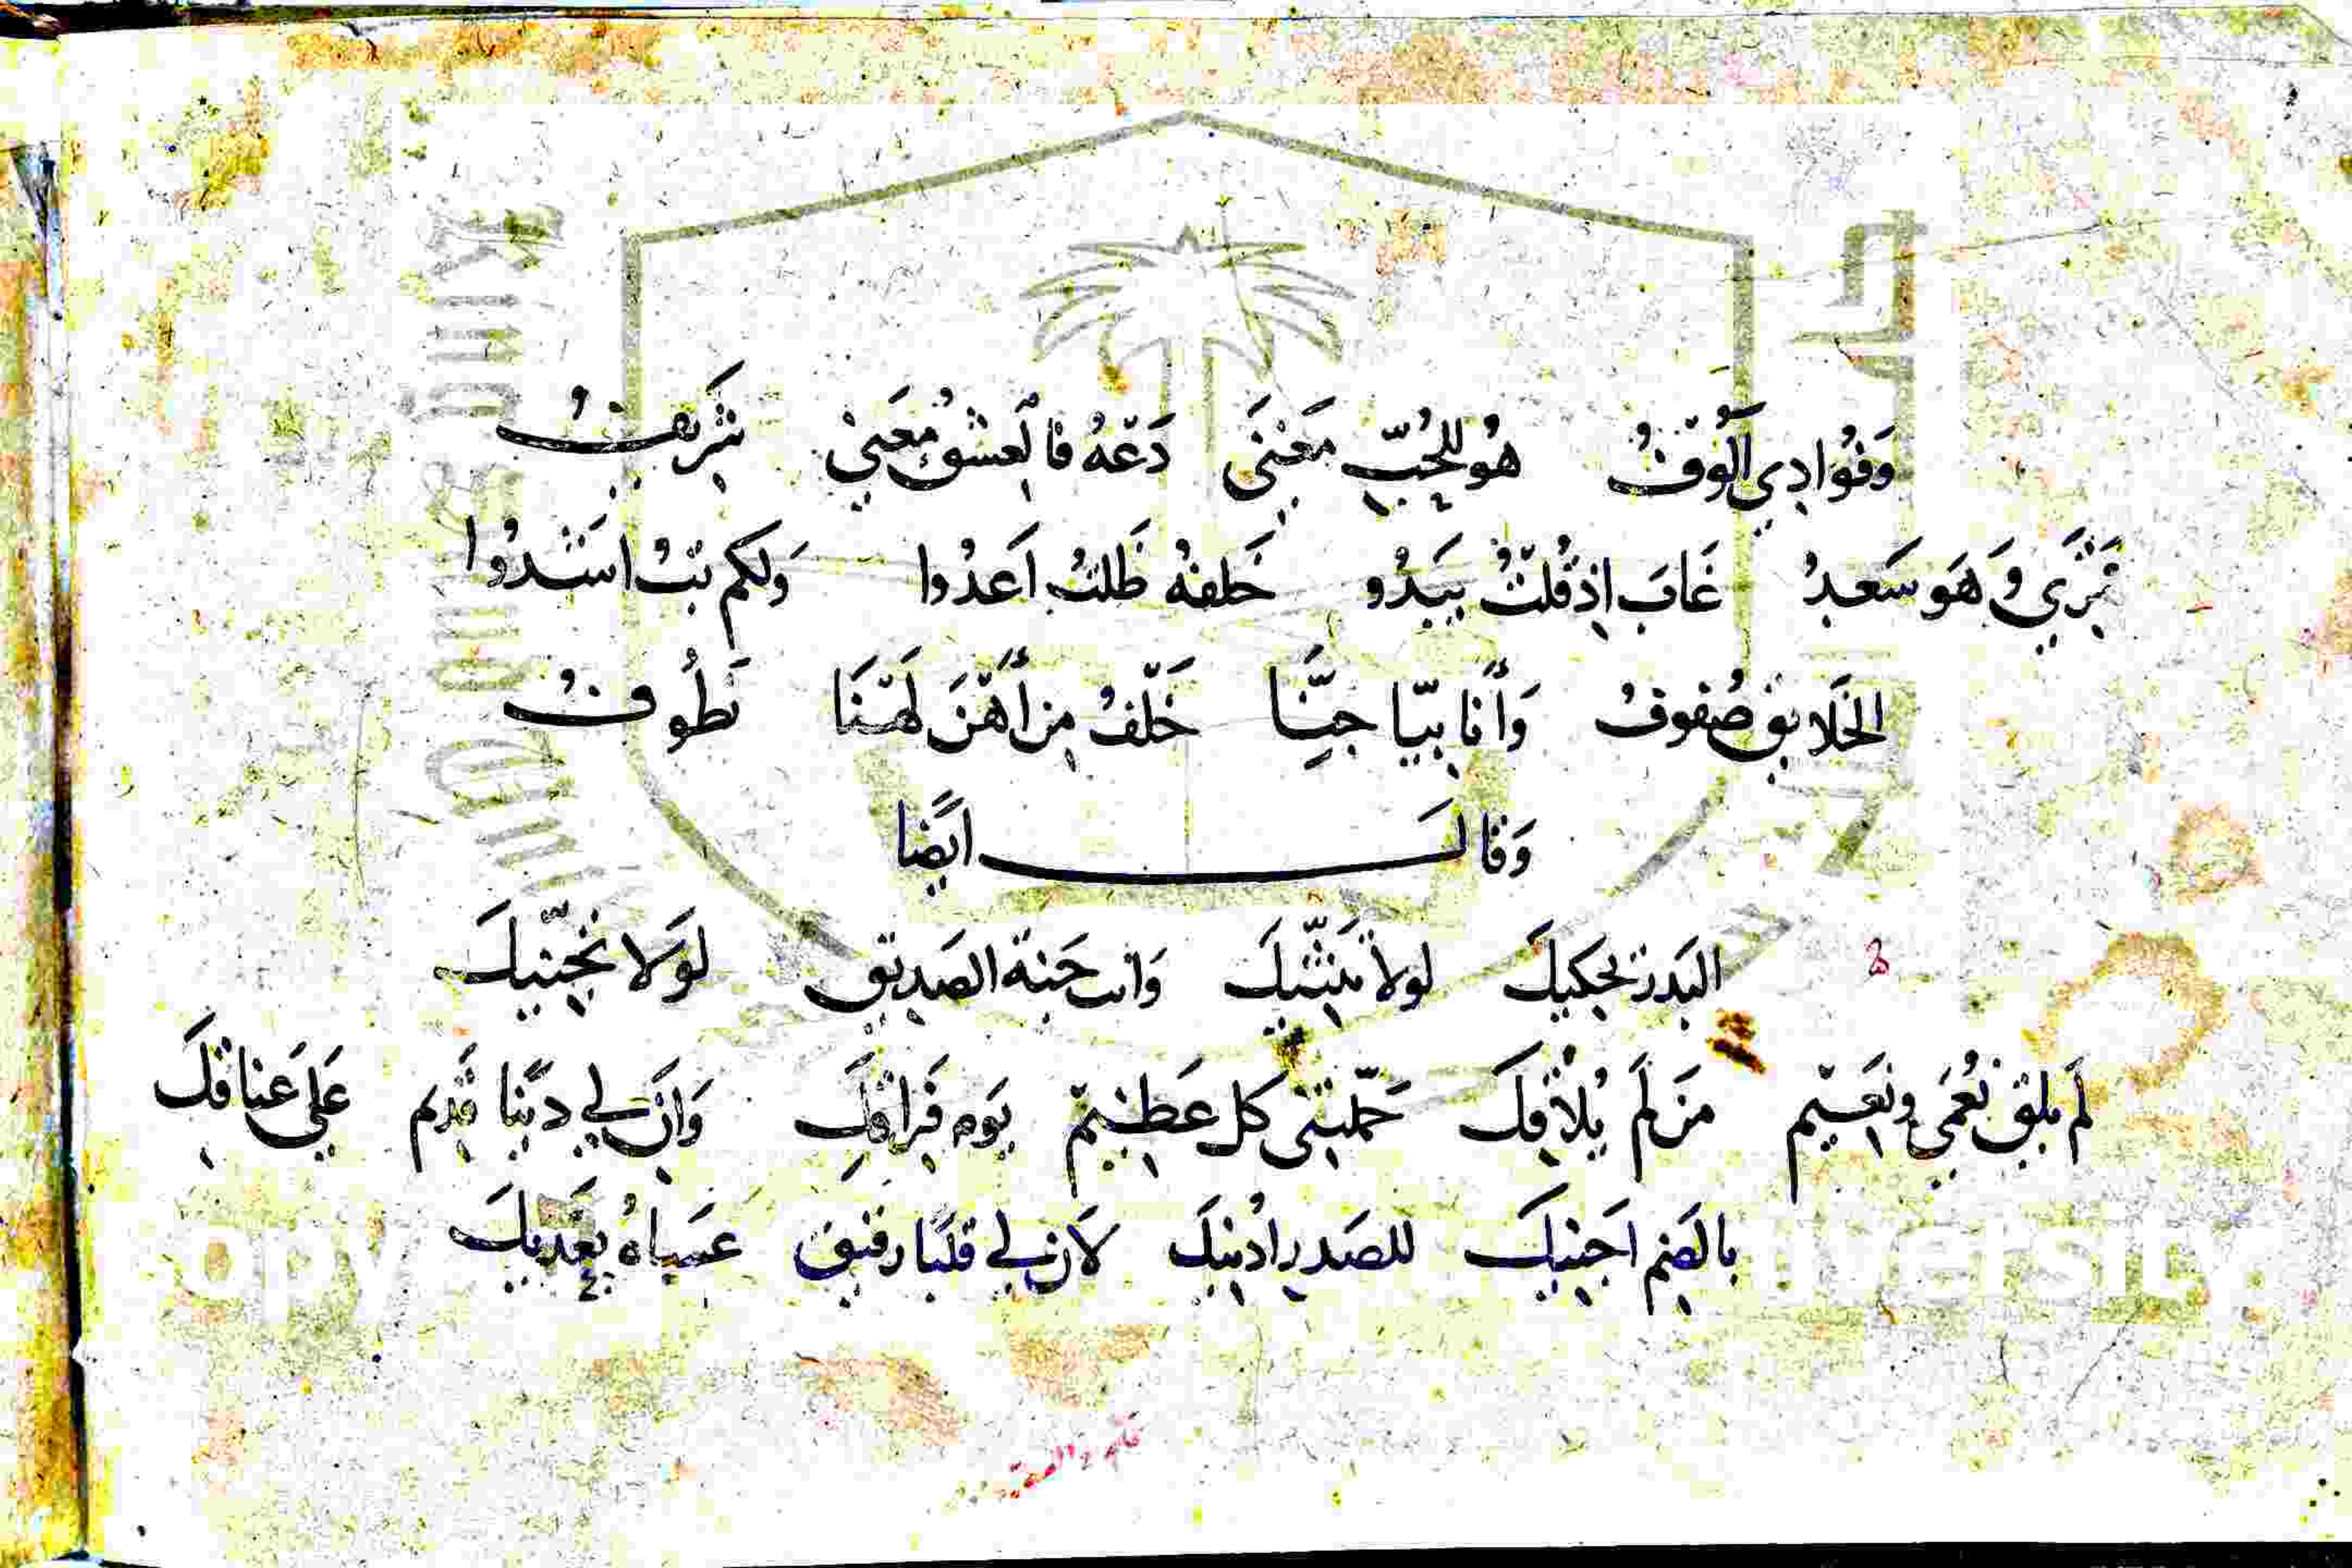 وَفُوَادِي اَلُوُفٌ هُو لِلحُبِّ مَعْنَى دَعْهُ فَالعِشْقُ مَعنىً شَرِيفُ
وَهَو سَعدُ غَابَ إِذ قُلتُ يَبَدُو خَلفهُ ظَلتُ اَعَدُوا وَلكم بَتُّ اسَشدُوا
الخَلايق صُفوفُ وَأَنا بيّا جِنّا خَلّفُ مِن أَهّنَ لَهّنَا نَطُوفُ
وَقَالَ ايَضًا
البَدر يحكيكَ لولا تَثنّيكَ وَانت جَنة الصَديق لَولا تجنّيكَ
لَم يلق نُعمَي ونَعيم مَن لَم يُلاقِك حَمّلتني كل عَظيم يَوم فَراقِكَ وَانّ لي دينًا قديم عَلى عنا قِك
بالضَم اجنيكَ للصَدر ادُنيكَ لاَن لي قلبًا رفيق عَساهُ يعَديكَ
copy University